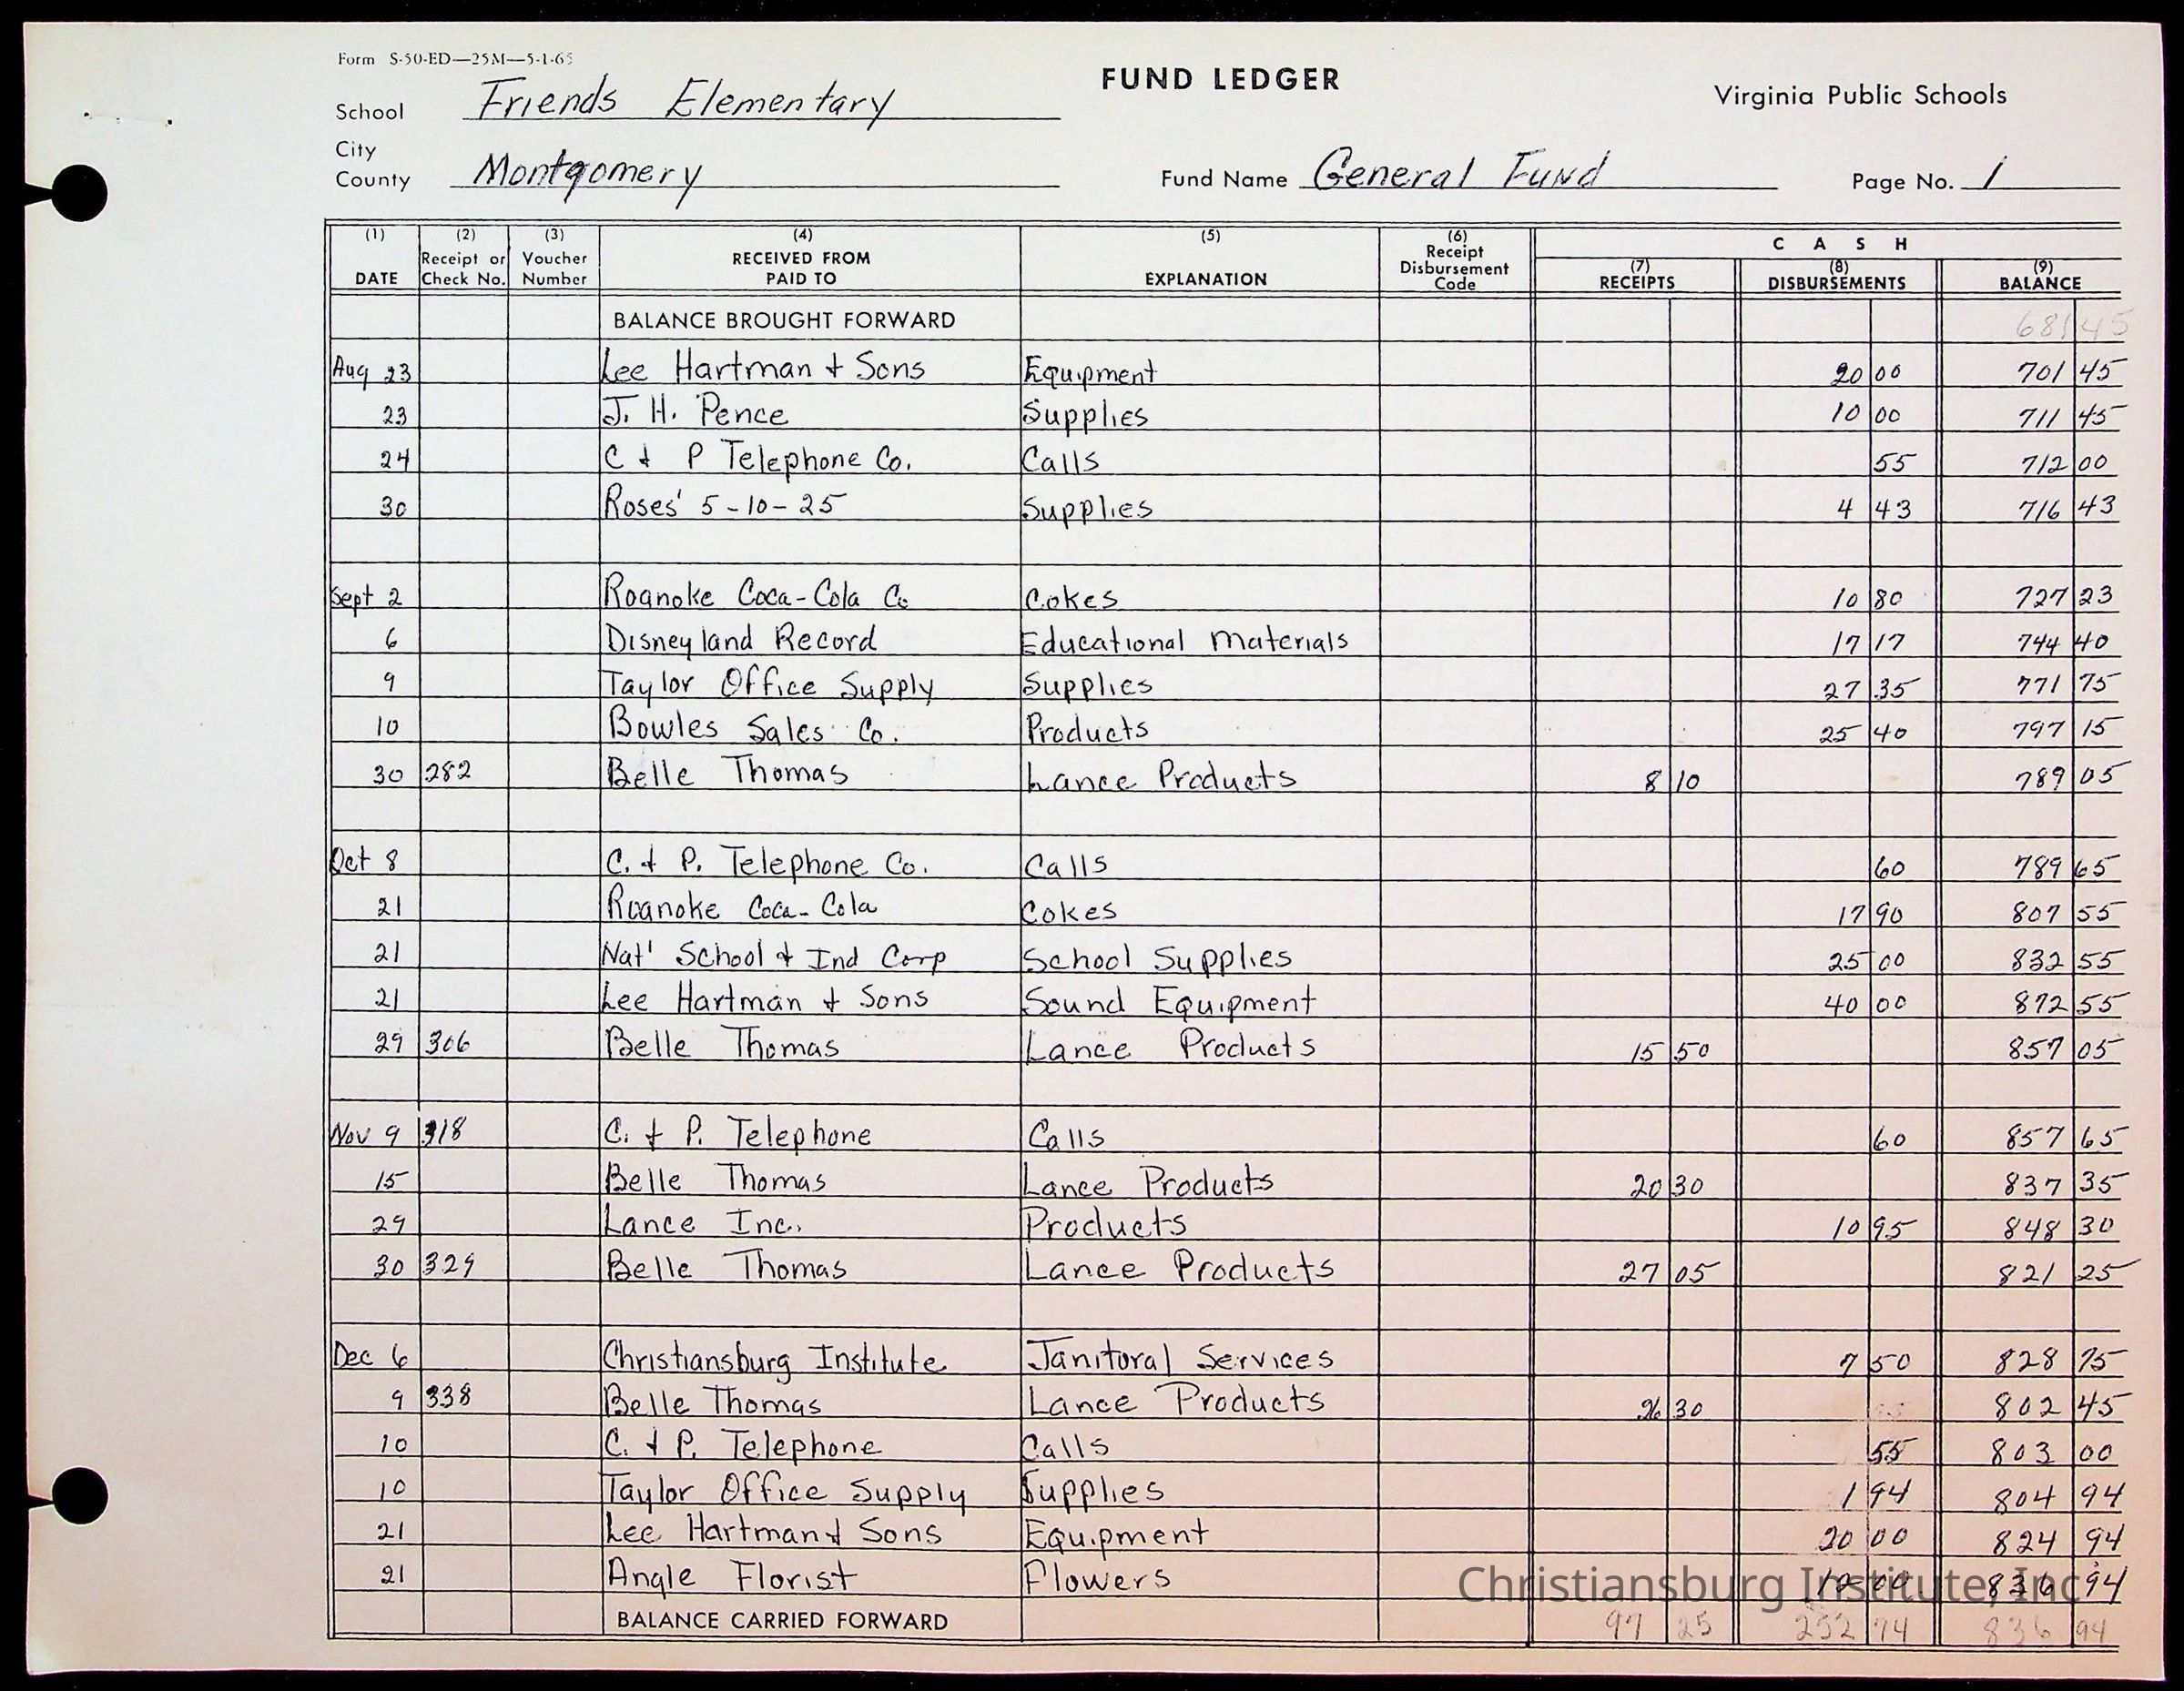 Form S-50-ED—25M—5-1-65
FUND LEDGER
Virginia Public Schools
School Friends Elementary
City
County Montgomery
Fund Name General Fund
Page No. 1
(1) (2) (3) (4) (5) (6) C A S H
DATE Receipt or Check No. Voucher Number RECEIVED FROM PAID TO EXPLANATION Receipt Disbursement Code (7) RECEIPTS (8) DISBURSEMENTS (9) BALANCE
BALANCE BROUGHT FORWARD 681 45
Aug 23 Lee Hartman + Sons Equipment 20 00 701 45
23 J. H. Pence Supplies 10 00 711 45
24 C + P Telephone Co. Calls 55 712 00
30 Roses' 5-10-25 Supplies 4 43 716 43
Sept 2 Roanoke Coca-Cola Co Cokes 10 80 727 23
6 Disneyland Record Educational Materials 17 17 744 40
9 Taylor Office Supply Supplies 27 35 771 75
10 Bowles Sales Co. Products 25 40 797 15
30 282 Belle Thomas Lance Products 8 10 789 05
Oct 8 C. + P. Telephone Co. Calls 60 789 65
21 Roanoke Coca-Cola Cokes 17 90 807 55
21 Nat' School + Ind Corp School Supplies 25 00 832 55
21 Lee Hartman + Sons Sound Equipment 40 00 872 55
29 306 Belle Thomas Lance Products 15 50 857 05
Nov 9 318 C. + P. Telephone Calls 60 857 65
15 Belle Thomas Lance Products 20 30 837 35
29 Lance Inc. Products 10 95 848 30
30 329 Belle Thomas Lance Products 27 05 821 25
Dec 6 Christiansburg Institute Janitoral Services 7 50 828 75
9 338 Belle Thomas Lance Products 26 30 802 45
10 C. + P. Telephone Calls 55 803 00
10 Taylor Office Supply Supplies 1 94 804 94
21 Lee Hartman + Sons Equipment 20 00 824 94
21 Angle Florist Flowers 12 00 836 94
Christiansburg Institute, Inc
BALANCE CARRIED FORWARD 97 25 252 74 836 94